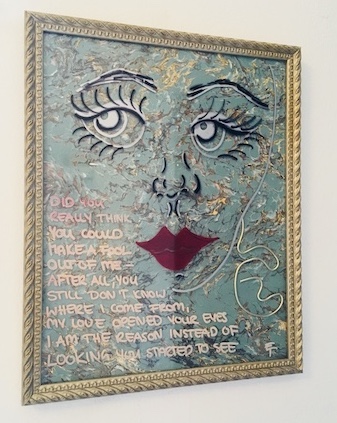 DID YOU
REALLY THINK
YOU COULD
MAKE A FOOL
OUT OF ME
AFTER ALL, YOU
STILL DON'T KNOW
WHERE I COME FROM,
MY LOVE OPENED YOUR EYES
I AM THE REASON INSTEAD OF
LOOKING YOU STARTED TO SEE